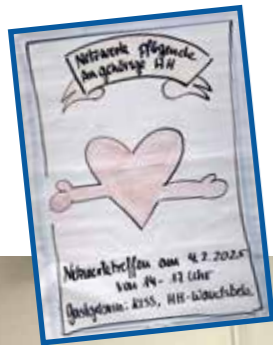 Netzwerk pflegende
Angehörige HH
Netzwerktreffen am 4.2.2025
von 14-17 Uhr
Gastgeberin: KISS, HH-Wandsbek